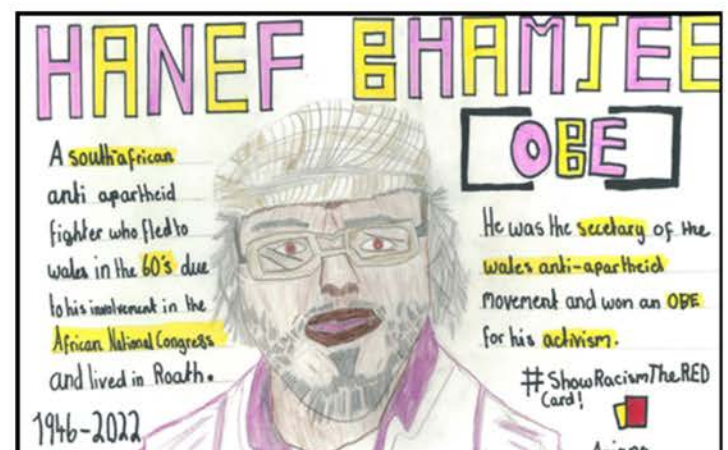 HANEF BHAMJEE
OBE
A south african
anti apartheid
fighter who fled to
wales in the 60's due
to his involvement in the
African National Congress
and lived in Roath.
1946-2022
He was the secetary of the
wales anti-apartheid
movement and won an OBE
for his activism.
#ShowRacismTheRED
Card!